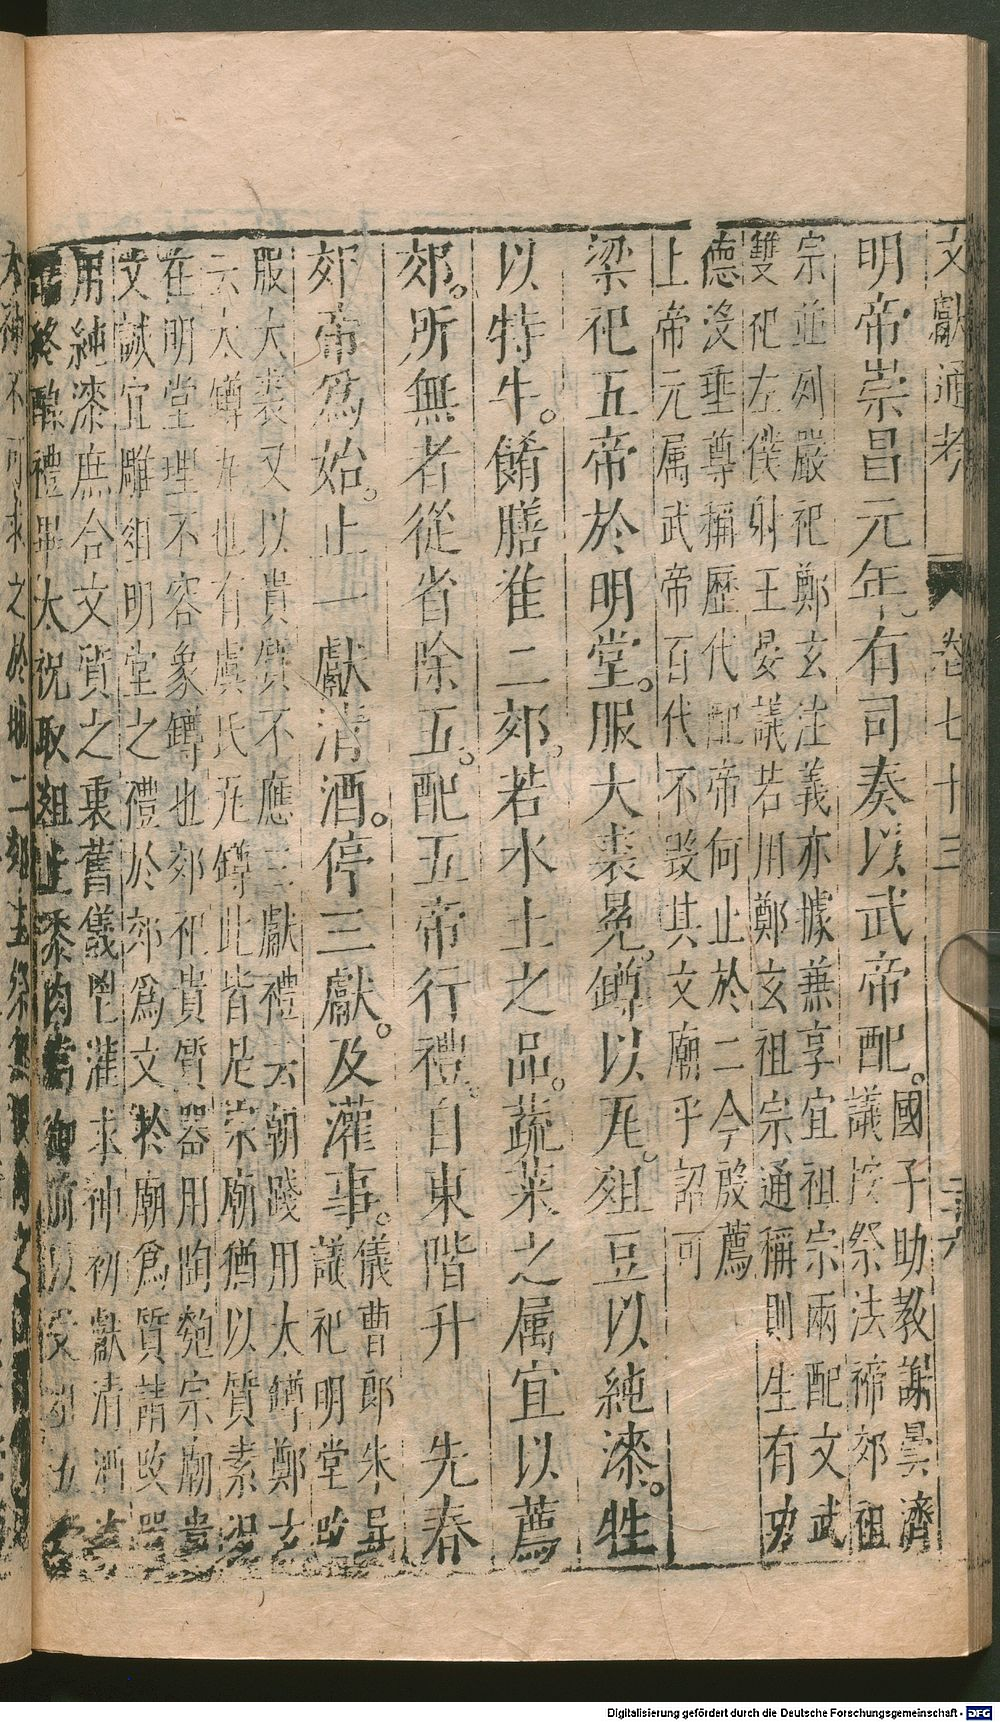 文獻通考 卷七十三 二六
明帝崇昌元年有司奏以武帝配國子助教謝曇濟
議按祭法禘郊祖
宗並列嚴祀鄭玄注義亦據兼享宜祖宗兩配文武
雙祀左僕射王晏議若用鄭玄祖宗通稱則生有功
德沒垂尊稱歷代配帝何止於二今殷薦
上帝元属武帝百代不毀其文廟乎詔可
梁祀五帝於明堂服大裘冕罇以瓦俎豆以純漆牲
以特牛餚膳准二郊若水土之品蔬菜之属宜以薦
郊所無者從省除五配五帝行禮自東階升 先春
郊帝爲始止一獻清酒停三獻及灌事儀曹郎朱异
議祀明堂改
服大裘又以貴質不應三獻禮云朝踐用太罇鄭玄
云太罇瓦也有虞氏瓦罇此皆是宗廟猶以質素況
在明堂理不容象罇也郊祀貴質器用陶匏宗廟貴
文誠宜雕俎明堂之禮於郊爲文於廟爲質請改器
用純漆庶合文質之衷舊儀鬯灌求神初獻清酒
終醁禮畢太祝取俎上黍肉當御前以受
不可求之於